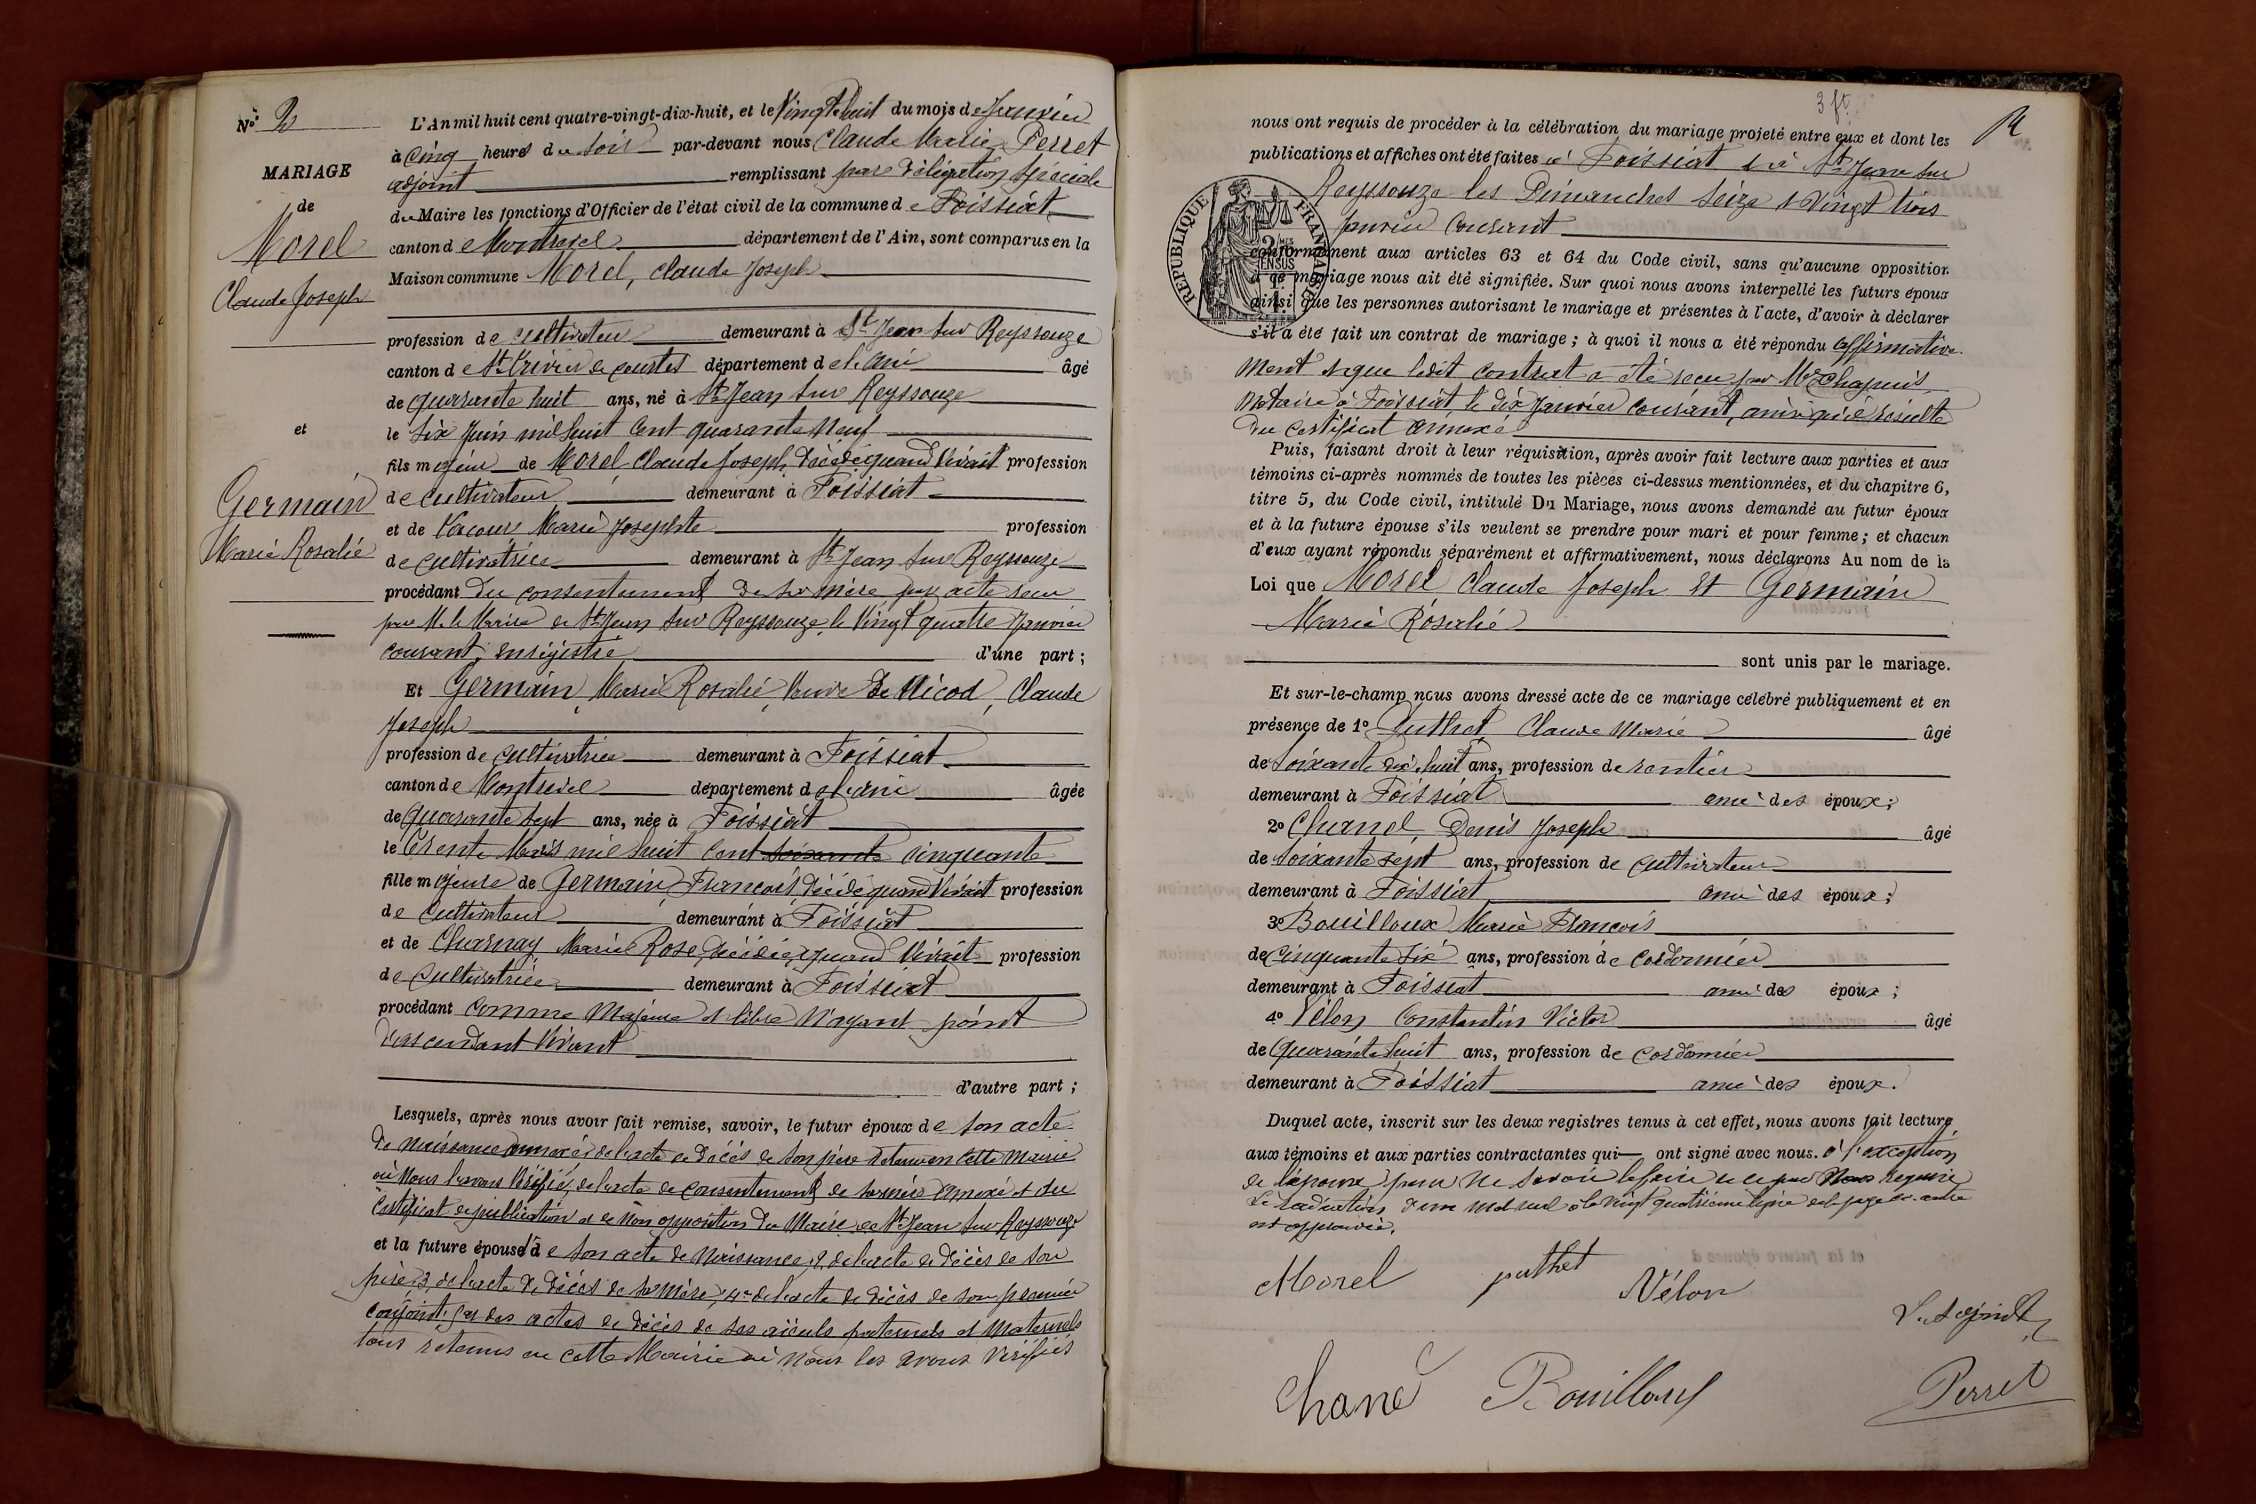 Nº 2
MARIAGE
de
Morel
Claude Joseph
et
Germain
Marie Rosalie
L'An mil huit cent quatre-vingt-dix-huit, et le Vingt huit du mois de Janvier
à Cinq heures du Soir par-devant nous Claude Marie Perret
adjoint remplissant par délégation Spéciale
du Maire les fonctions d'Officier de l'état civil de la commune de Foissiat
canton de Montrevel département de l'Ain, sont comparus en la
Maison commune Morel, Claude Joseph
profession de cultivateur demeurant à St Jean sur Reyssouze
canton de St Trivier de Courtes département de l'ain âgé
de quarante huit ans, né à St Jean sur Reyssouze
le Six Juin mil huit Cent quarante Neuf
fils majeur de Morel Claude Joseph, décédé quand Vivait profession
de cultivateur demeurant à Foissiat
et de Marie Josephte profession
de cultivatrice demeurant à St Jean sur Reyssouze
procédant du consentement de sa mère par acte reçu
par M. le Maire de St Jean sur Reyssouze, le Vingt quatre Janvier
courant, enregistré d'une part ;
Et Germain, Marie Rosalie, Veuve de Nicod, Claude
Joseph
profession de cultivatrice demeurant à Foissiat
canton de Montrevel département de l'ain âgée
de quarante sept ans, née à Foissiat
le Trente Mars mil huit Cent soixante cinquante
fille majeure de Germain, François, décédé quand Vivait profession
de cultivateur demeurant à Foissiat
et de Charnay Marie Rose, décédée, quand Vivait profession
de cultivatrice demeurant à Foissiat
procédant comme Majeure et libre N'ayant point
d'ascendant Vivant
d'autre part ;
Lesquels, après nous avoir fait remise, savoir, le futur époux de son acte
de naissance annexé, de l'acte de décès de son père retenu en Cette Mairie
où Nous l'avons Vérifié, de l'acte de consentement de sa mère annexé et du
Certificat de publication et de Non opposition du Maire de St Jean sur Reyssouze
et la future épouse 1° de son acte de Naissance, 2° de l'acte de décès de son
père, 3° de l'acte de décès de sa Mère, 4° de l'acte de décès de son premier
conjoint, des actes de décès de ses aïeuls paternels et Maternels
tous retenus en cette Mairie où Nous les avons Vérifiés
3 ft
nous ont requis de procéder à la célébration du mariage projeté entre eux et dont les
publications et affiches ont été faites à Foissiat et à St Jean sur
Reyssouze les Dimanches Seize & Vingt trois
Janvier Courant
REPUBLIQUE FRANÇAISE
conformément aux articles 63 et 64 du Code civil, sans qu'aucune opposition
à ce mariage nous ait été signifiée. Sur quoi nous avons interpellé les futurs époux
ainsi que les personnes autorisant le mariage et présentes à l'acte, d'avoir à déclarer
s'il a été fait un contrat de mariage ; à quoi il nous a été répondu affirmative-
Ment & que ledit Contrat a été reçu par Me Chapuis
Notaire à Foissiat, le dix Janvier Courant, ainsi qu'il résulte
du Certificat annexé
Puis, faisant droit à leur réquisition, après avoir fait lecture aux parties et aux
témoins ci-après nommés de toutes les pièces ci-dessus mentionnées, et du chapitre 6,
titre 5, du Code civil, intitulé Du Mariage, nous avons demandé au futur époux
et à la future épouse s'ils veulent se prendre pour mari et pour femme ; et chacun
d'eux ayant répondu séparément et affirmativement, nous déclarons Au nom de la
Loi que Morel Claude Joseph Et Germain
Marie Rosalie
sont unis par le mariage.
Et sur-le-champ nous avons dressé acte de ce mariage célébré publiquement et en
présence de 1º Puthet Claude Marie âgé
de Soixante dix huit ans, profession de rentier
demeurant à Foissiat ami des époux ;
2º Chanel, Denis Joseph âgé
de Soixante sept ans, profession de cultivateur
demeurant à Foissiat ami des époux ;
3º Bouilloux Marie François
de Cinquante Six ans, profession de cordonnier
demeurant à Foissiat ami des époux ;
4º Vélon Constantin Victor âgé
de quarante huit ans, profession de cordonnier
demeurant à Foissiat ami des époux.
Duquel acte, inscrit sur les deux registres tenus à cet effet, nous avons fait lecture
aux témoins et aux parties contractantes qui ont signé avec nous. à l'exception
de l'épouse pour ne savoir le faire de ce par Nous Requise
La radiation d'un mot nul à la vingt quatrième ligne de la page ci-contre
est approuvée.
Morel puthet Vélon
L'adjoint
Chanel Bouilloux Perret